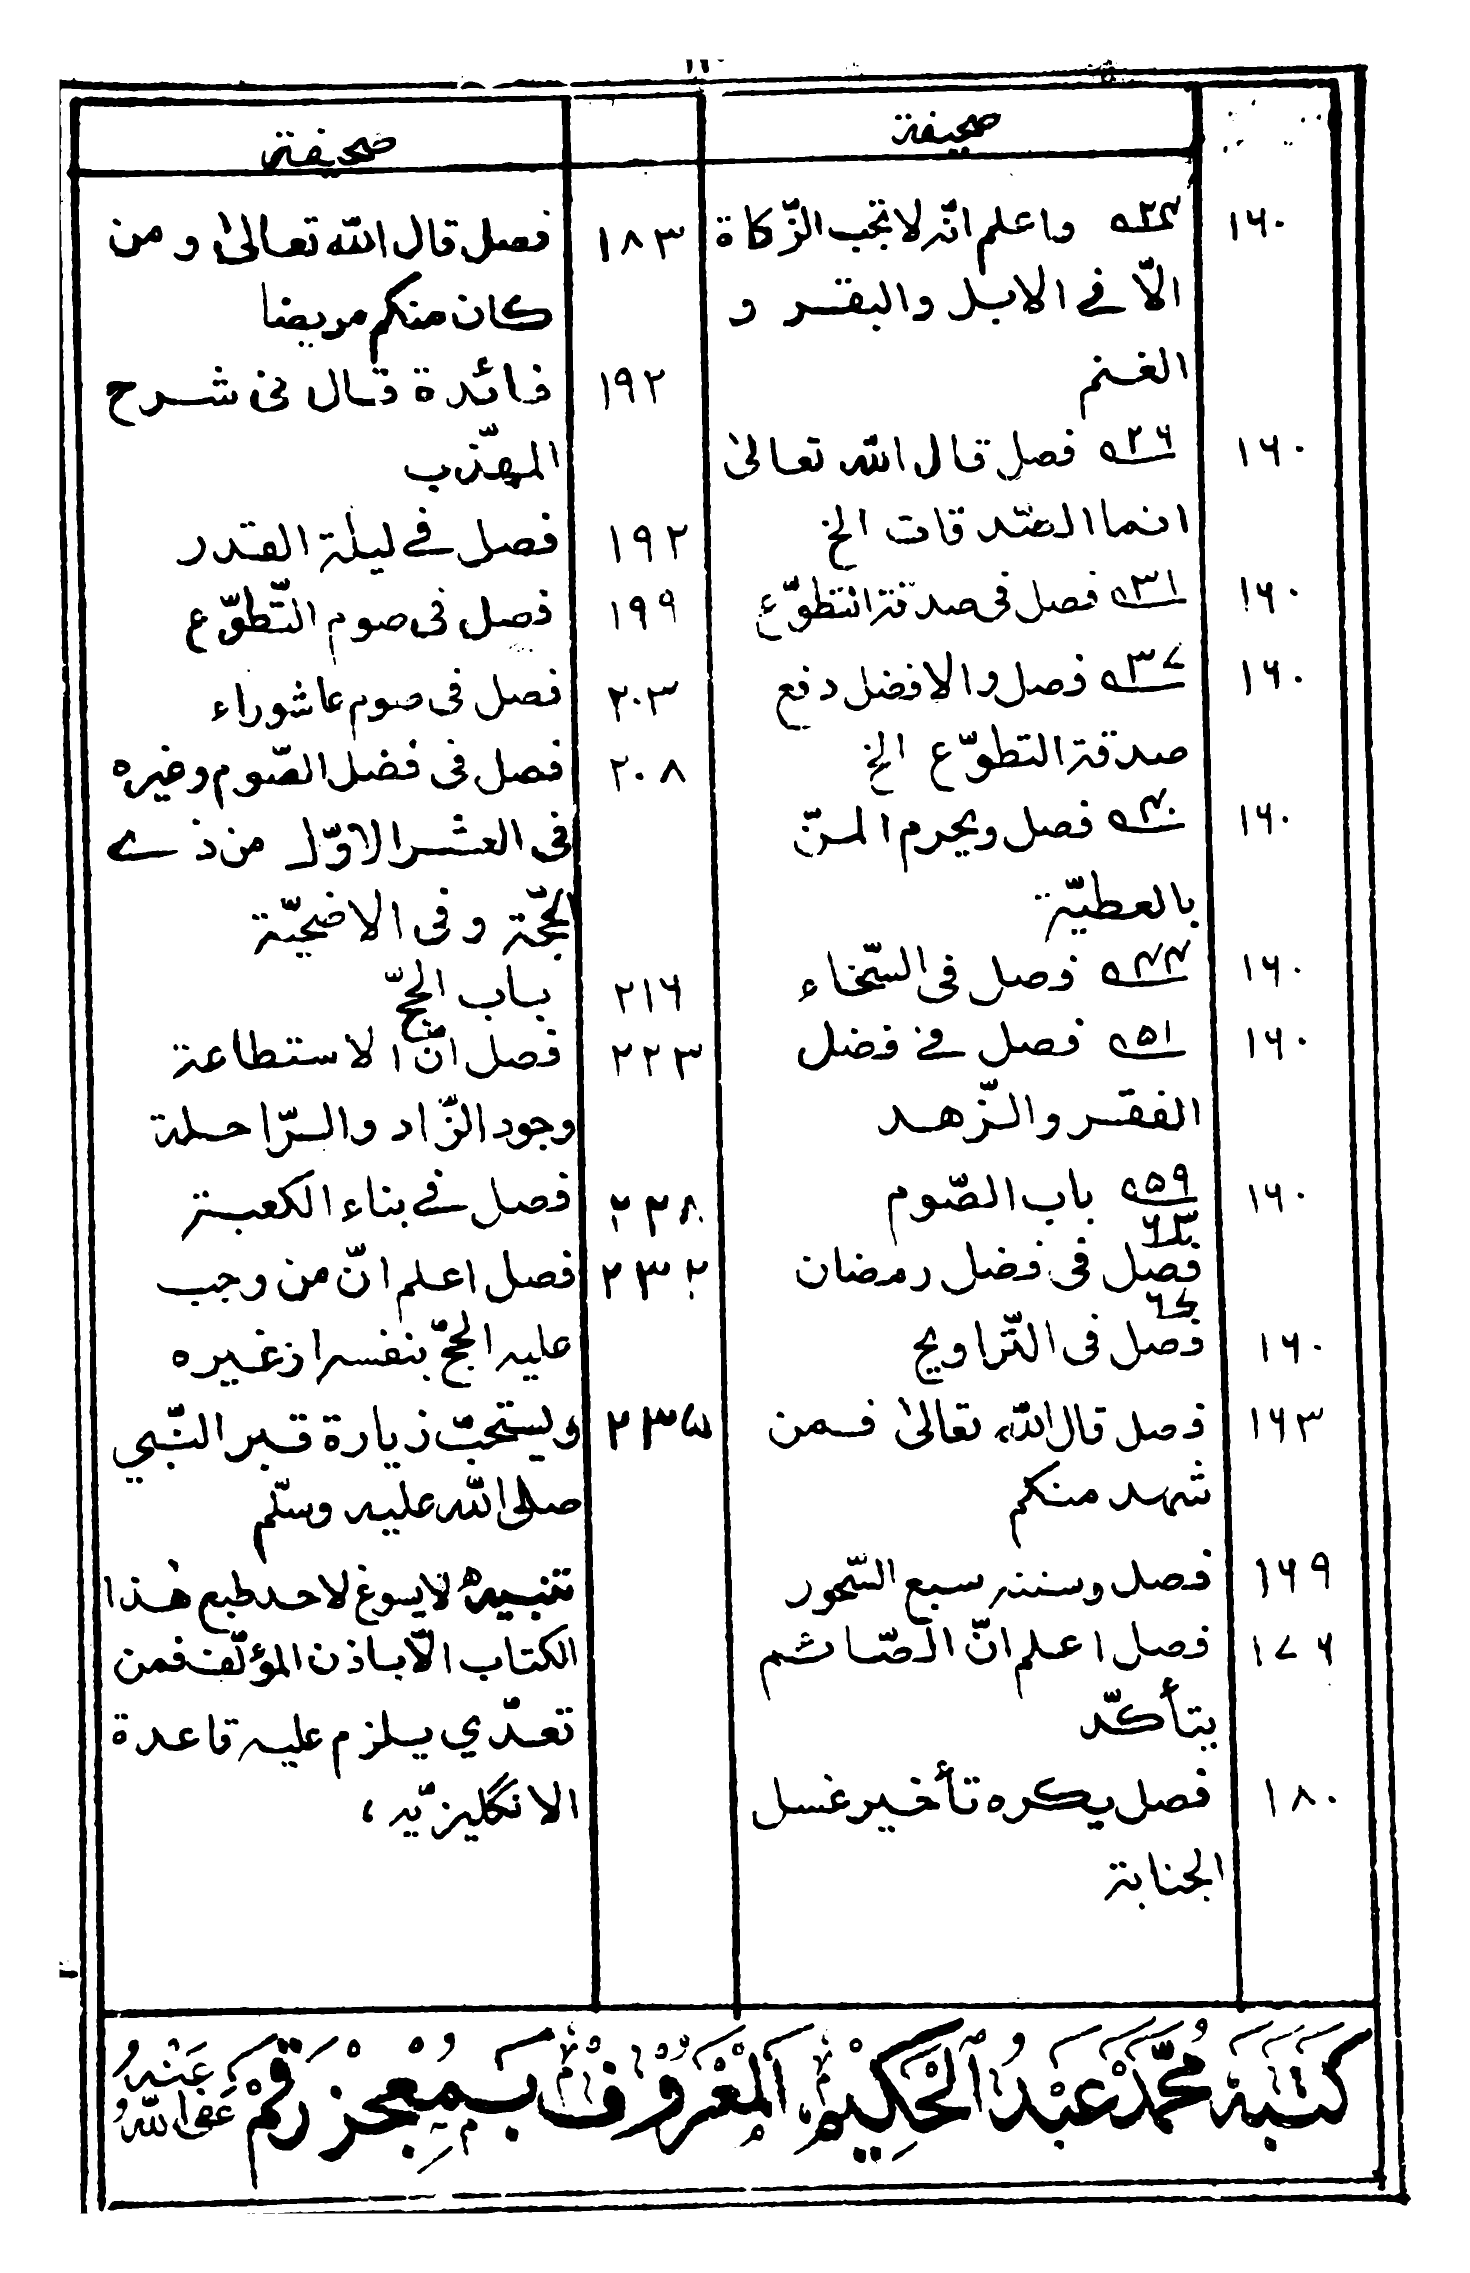 صحيفة
١٦٠ ٢٣ واعلم انّه لا تجب الزّكاة
الّا في الابل والبقر و
الغنم
١٦٠ ٢٦ فصل قال الله تعالىٰ
انما الصّدقات الخ
١٦٠ ٣١ فصل فى صدقة التطوّع
١٦٠ ٣٧ فصل والافضل دفع
صدقة التطوّع الخ
١٦٠ ٤٠ فصل ويحرم المنّ
بالعطيّة
١٦٠ ٤٤ فصل فى السّخاء
١٦٠ ٥١ فصل في فضل
الفقر والزّهد
١٦٠ ٥٩ باب الصّوم
٦٣
فصل فى فضل رمضان
٦٧
١٦٠ فصل فى التّراويح
١٦٣ فصل قال الله تعالىٰ فمن
شهد منكم
١٦٩ فصل وسننه سبع السّحور
١٧٦ فصل اعلم انّ الصّائم
يتأكّد
١٨٠ فصل يكره تأخير غسل
الجنابة
صحيفة
١٨٣ فصل قال الله تعالىٰ ومن
كان منكم مريضا
١٩٢ فائدة قال فى شرح
المهذّب
١٩٢ فصل في ليلة القدر
١٩٩ فصل فى صوم التّطوّع
٢٠٣ فصل فى صوم عاشوراء
٢٠٨ فصل فى فضل الصّوم وغيره
فى العشر الاوّل من ذي
الحجّة وفى الاضحيّة
٢١٦ باب الحجّ
٢٢٣ فصل انّ الاستطاعة
وجود الزّاد والرّاحلة
٢٢٨ فصل في بناء الكعبة
٢٣٢ فصل اعلم انّ من وجب
عليه الحجّ بنفسه او غيره
٢٣٥ ويستحبّ زيارة قبر النّبي
صلى الله عليه وسلّم
تنبيه لا يسوغ لاحد طبع هٰذا
الكتاب الّا باذن المؤلّف فمن
تعدّي يلزم عليه قاعدة
الانگليزيّه ،
كَتَبَهٗ مُحَمَّدْ عَبْدُ الْحَكِيْم الْمَعْرُوْفْ بَمُعْجِزْ رَقَمْ عَفَا اللّٰهُ عَنْهُ